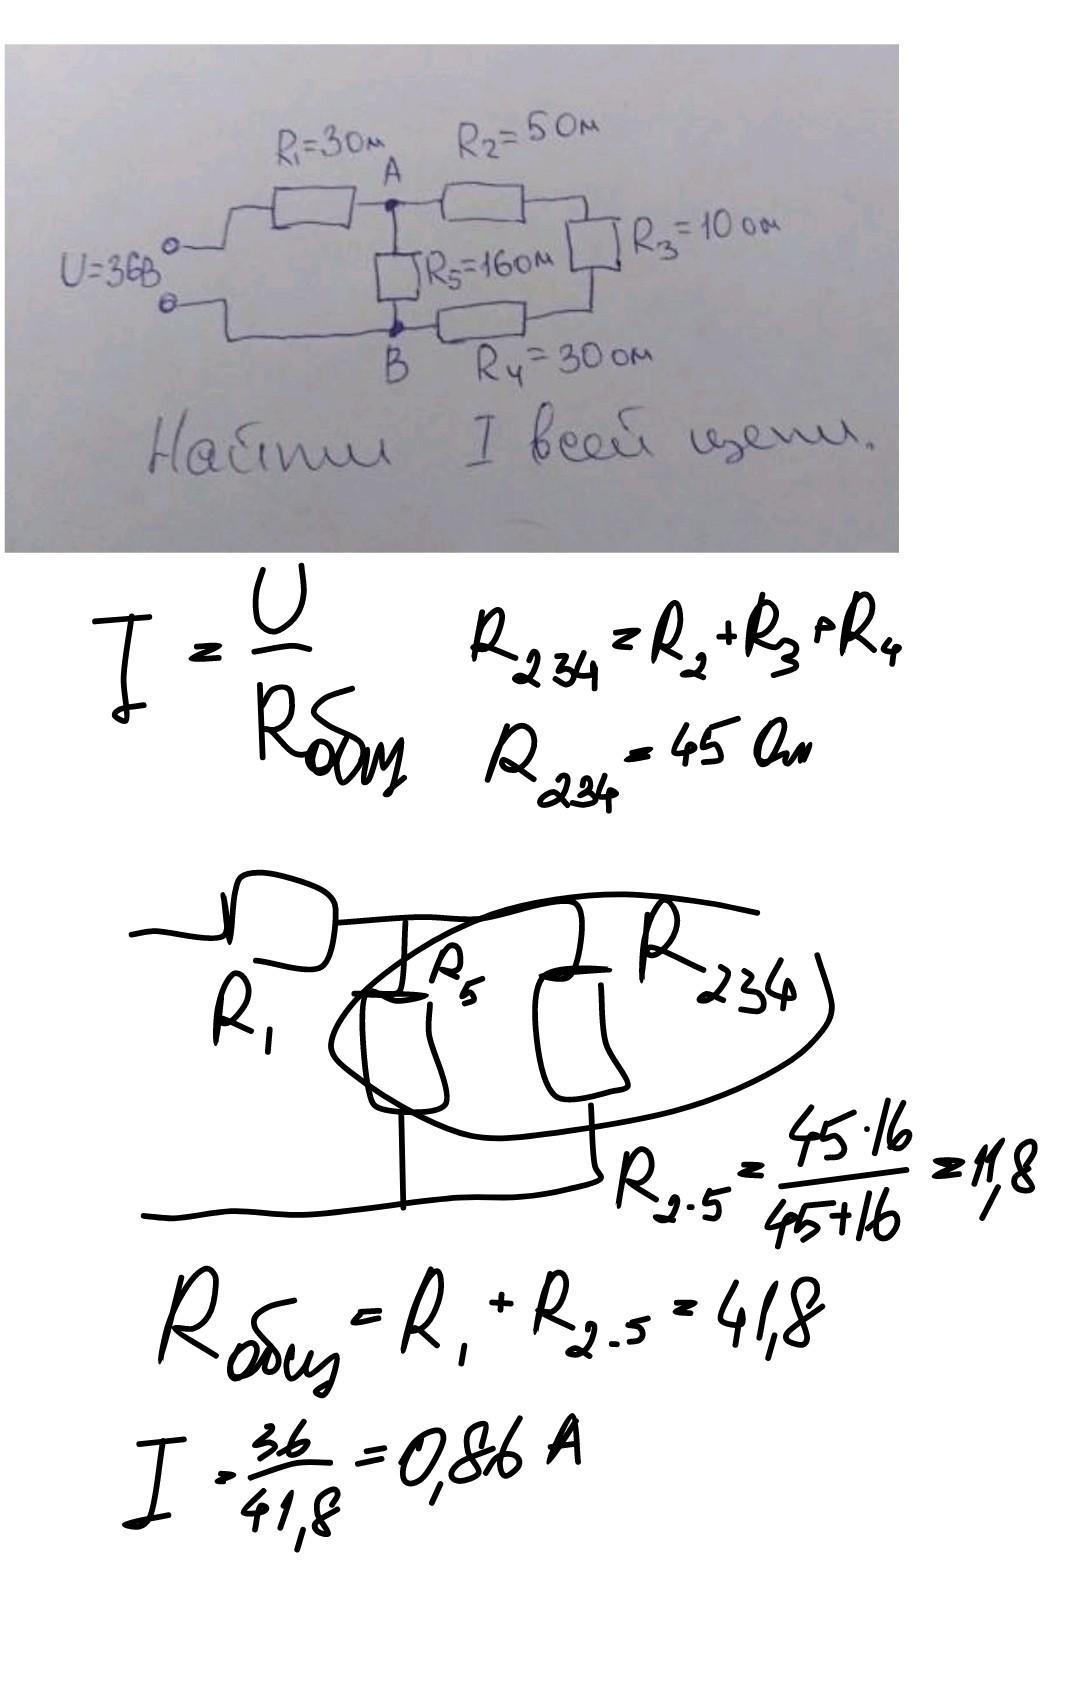 R₁=3Ом R₂=5Ом
A
U=36В R₅=16Ом R₃=10 Ом
B R₄=30 Ом
Найти I всей цепи.
I = U/Rобщ R₂₃₄ = R₂ + R₃ + R₄
R₂₃₄ = 45 Ом
R₁ R₅ R₂₃₄
R₂₋₅ = 45·16/45+16 = 11,8
Rобщ = R₁ + R₂₋₅ = 41,8
I = 36/41,8 = 0,86 А